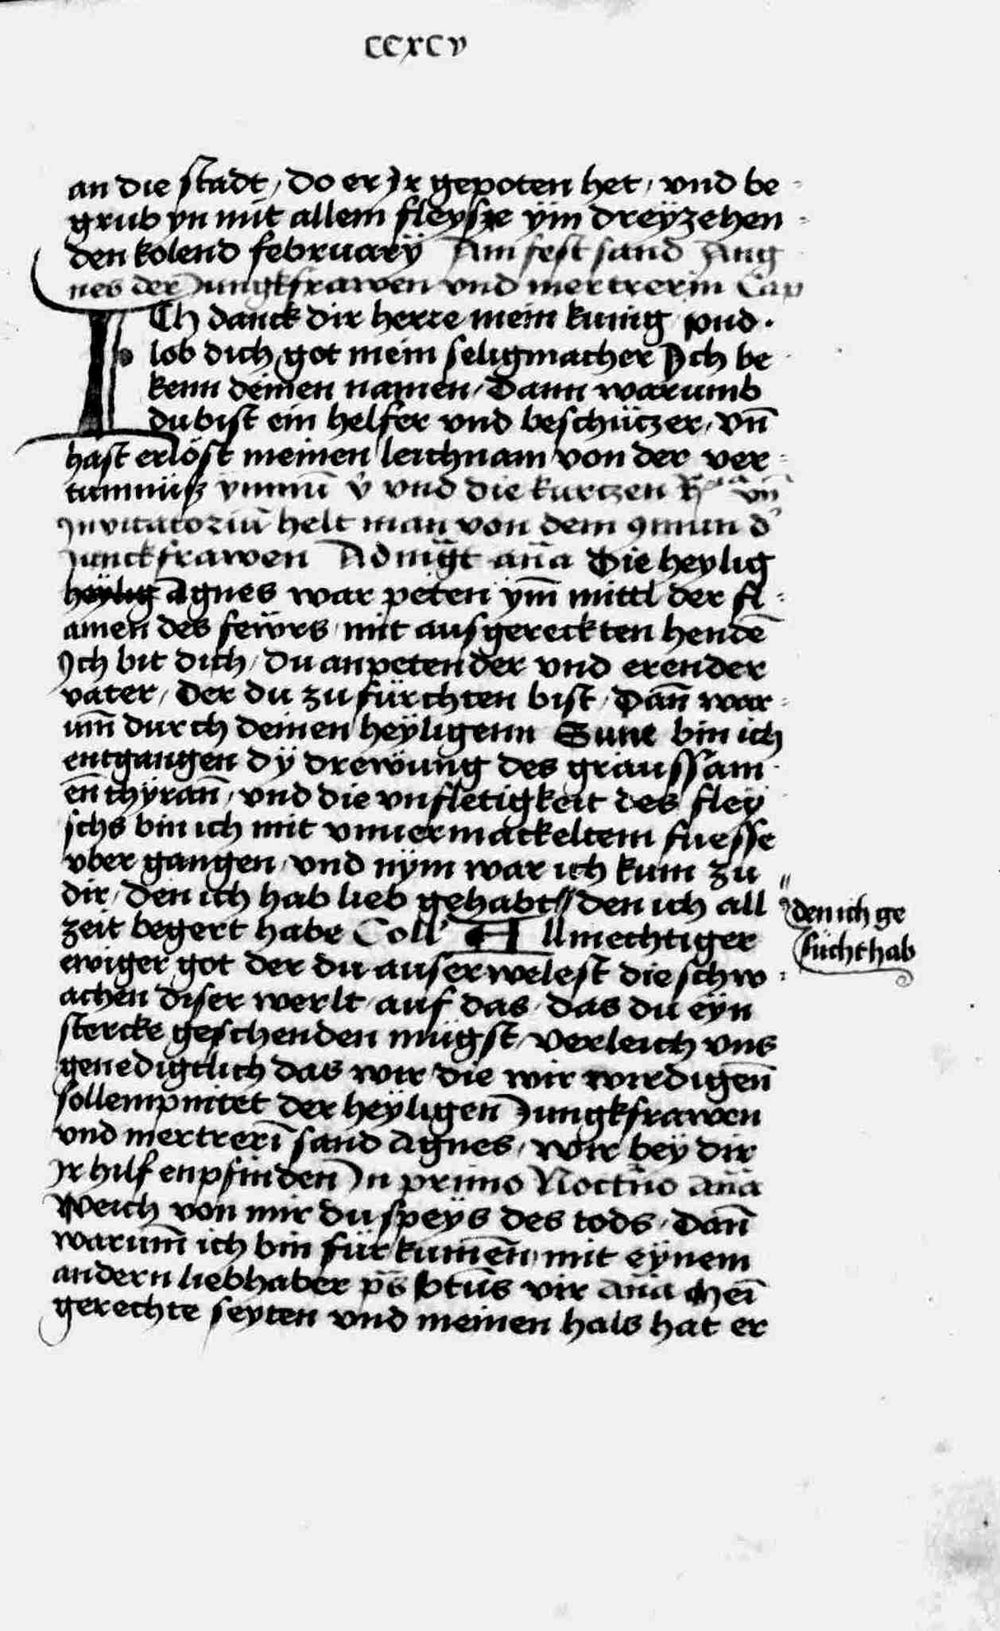 ccxcv
an die stadt, do er Jr gepoten het, vnd be-
grub yn mit allem fleysze ÿm dreÿzehen-
den kolend februarÿ Am fest sand Ang
nes der Jungkfrawen vnd mertrerin Cap
ICh danck dir herre mein kunig vnd
lob dich got mein seligmacher Ych be
kenn deinen namen, Dann warumb
du bist ein helfer vnd beschüczer, vn̄
hast erlöst meinen leichnam von der ver-
tumnüß ymnu᷒ v̈ vnd die kurczen R vn̄
Jnvitatoriu̅ helt man von dem 9mun d'
Junckfrawen Ad nigt an̄a Die heylig
heylig Agnes war peten ÿm̄ mittl der fl-
amen des fewrs mit ausgereckten hende̅
Ych bit dich, du anpetender vnd erender
vater, der du zu fürchten bist, Dan̄ war-
um̄ durch deinen heÿligenn Sune bin ich
entgangen dÿ drewung des graussam-
en̄ thÿran̄, vnd die vnfletigkeit des fleÿ
schs bin ich mit vnuermackeltem fuesse
vber gangen, vnd nÿm war ich kum zu
dir, den ich hab lieb gehabt // den ich all
zeit begert habe Coll' Allmechtiger
ewiger got der du auserwelest die schw-
achen diser werlt, auf das, das du eÿn
stercke geschenden mügst, Verleich vns
genedigtlich das wir die wir wirdigen̄
sollempnitet der heÿligen̄ Jungkfrawen
vnd mertreri̅ sand Agnes, wir beÿ dir
Jr hilf enpfinden Jn primo Noctn̄o an̄a
Weich von mir du speÿs des tods, Dan̄
warum̄ ich bin für kumen̄ mit eÿnem
andern liebhaber ps̄ Btu̅s vir an̄a Mei̅
gerechte seyten vnd meinen hals hat er
// den ich ge
sücht hab